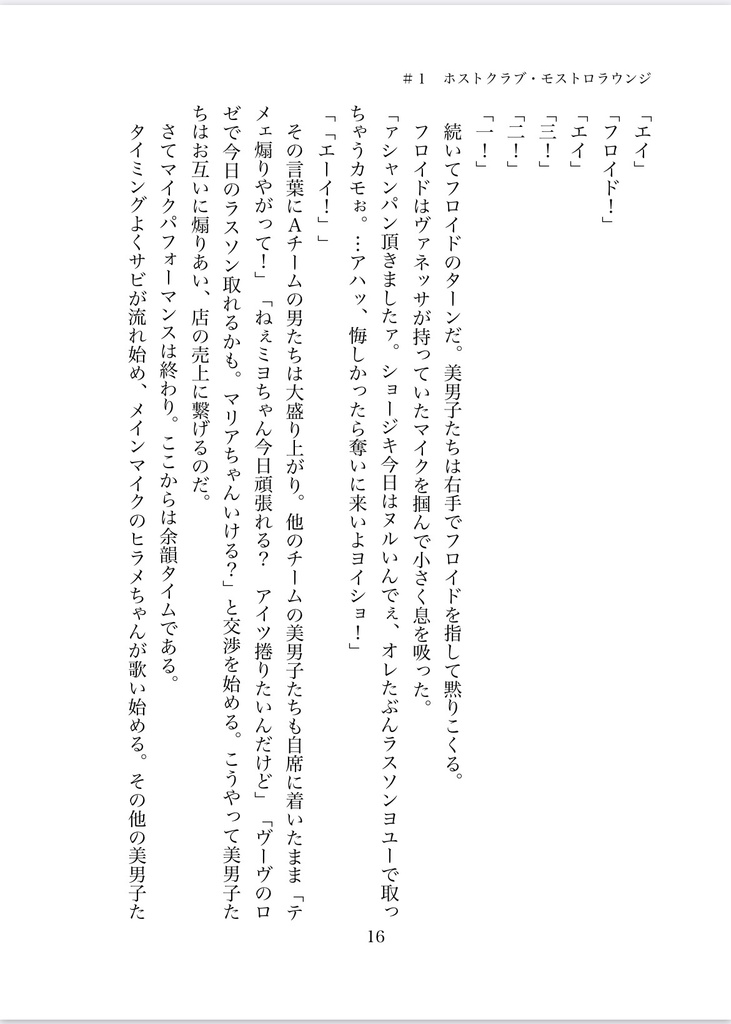 #1 ホストクラブ・モストロラウンジ
「エイ」
「フロイド！」
「エイ」
「三！」
「二！」
「一！」
　続いてフロイドのターンだ。美男子たちは右手でフロイドを指して黙りこくる。
　フロイドはヴァネッサが持っていたマイクを掴んで小さく息を吸った。
「ァシャンパン頂きましたァ。ショージキ今日はヌルいんでぇ、オレたぶんラスソンヨユーで取っ
ちゃうカモぉ。…アハッ、悔しかったら奪いに来いよヨイショ！」
「「エーイ！」」
　その言葉にAチームの男たちは大盛り上がり。他のチームの美男子たちも自席に着いたまま「テ
メェ煽りやがって！」「ねぇミヨちゃん今日頑張れる？　アイツ捲りたいんだけど」「ヴーヴのロ
ゼで今日のラスソン取れるかも。マリアちゃんいける？」と交渉を始める。こうやって美男子た
ちはお互いに煽りあい、店の売上に繋げるのだ。
　さてマイクパフォーマンスは終わり。ここからは余韻タイムである。
　タイミングよくサビが流れ始め、メインマイクのヒラメちゃんが歌い始める。その他の美男子た
16